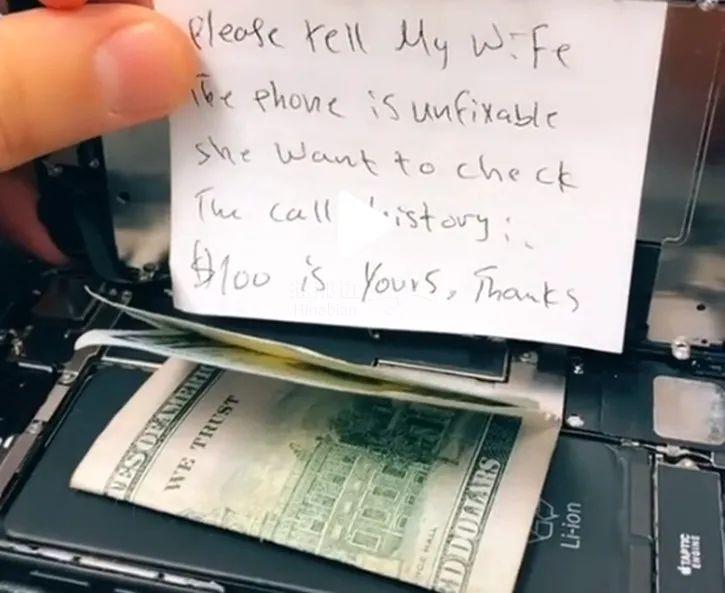 Please tell My Wife
The phone is unfixable
she want to check
The call history:.
$100 is Yours, Thanks
Hinabian
WE TRUST
Li-ion
TAPTIC
ENGINE